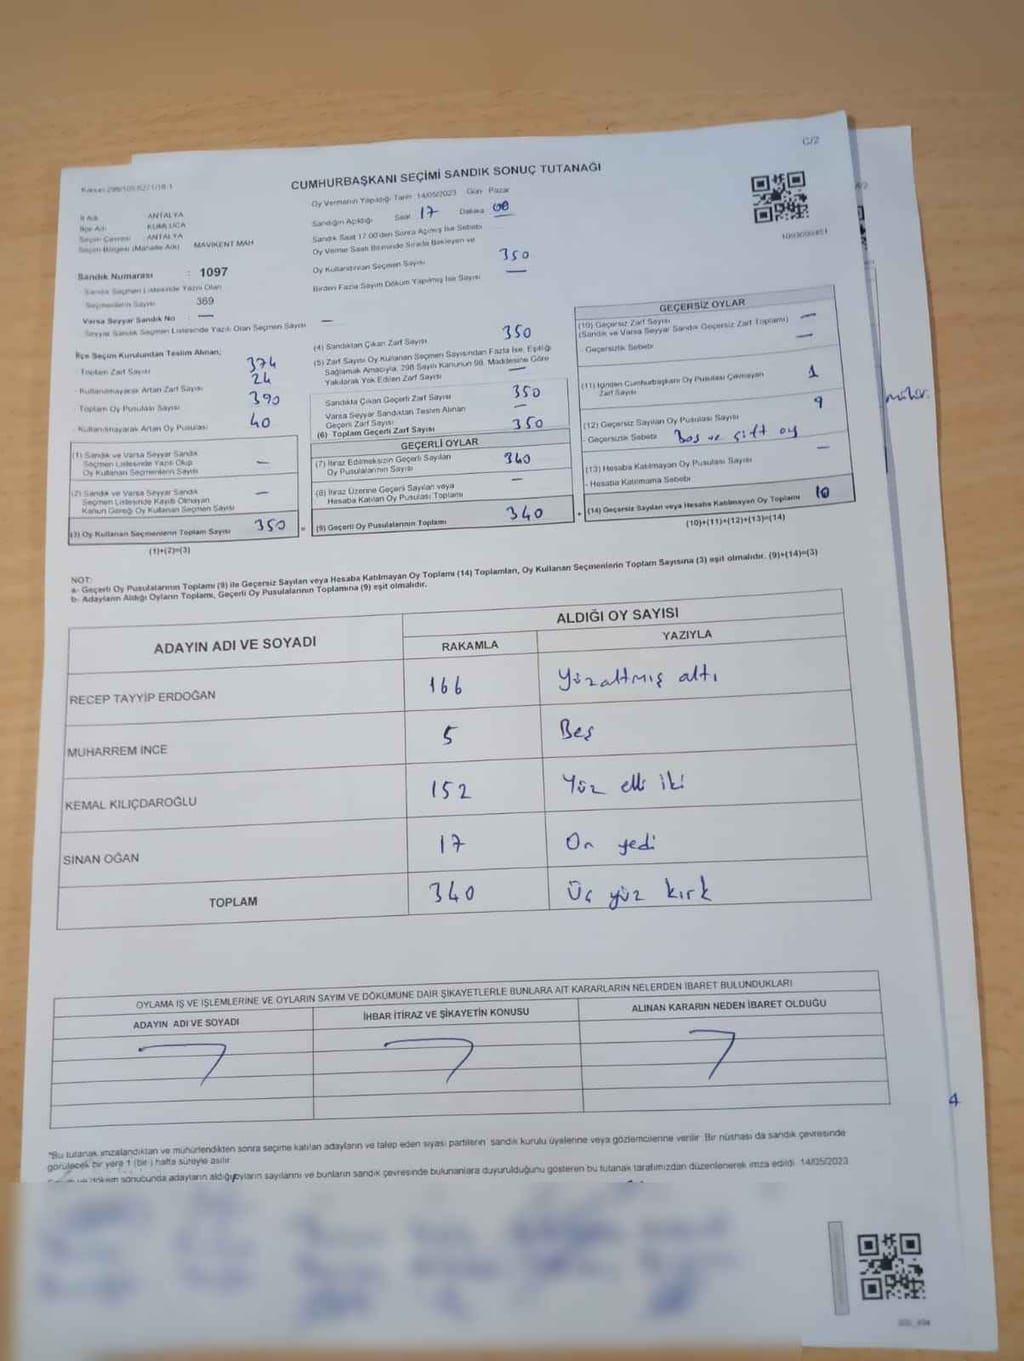 C/2
CUMHURBAŞKANI SEÇİMİ SANDIK SONUÇ TUTANAĞI
Oy Vermenin Yapıldığı Tarih 14/05/2023 Gün Pazar
İl Adı ANTALYA
İlçe Adı KUMLUCA
Seçim Çevresi ANTALYA
Seçim Bölgesi (Mahalle Adı) MAVİKENT MAH
Sandığın Açıldığı Saat 17 Dakika 00
Sandık Saat 17:00'den Sonra Açılmış İse Sebebi
Oy Verme Saati Bitiminde Sırada Bekleyen ve
Oy Kullandırılan Seçmen Sayısı 350
Birden Fazla Sayım Döküm Yapılmış İse Sayısı —
Sandık Numarası : 1097
Sandık Seçmen Listesinde Yazılı Olan
Seçmenlerin Sayısı 369
Varsa Seyyar Sandık No : —
Seyyar Sandık Seçmen Listesinde Yazılı Olan Seçmen Sayısı —
İlçe Seçim Kurulundan Teslim Alınan;
- Toplam Zarf Sayısı 374
- Kullanılmayarak Artan Zarf Sayısı 24
- Toplam Oy Pusulası Sayısı 390
- Kullanılmayarak Artan Oy Pusulası 40
(1) Sandık ve Varsa Seyyar Sandık
Seçmen Listesinde Yazılı Olup
Oy Kullanan Seçmenlerin Sayısı —
(2) Sandık ve Varsa Seyyar Sandık
Seçmen Listesinde Kayıtlı Olmayan
Kanun Gereği Oy Kullanan Seçmen Sayısı —
(3) Oy Kullanan Seçmenlerin Toplam Sayısı 350
(1)+(2)=(3)
(4) Sandıktan Çıkan Zarf Sayısı 350
(5) Zarf Sayısı Oy Kullanan Seçmen Sayısından Fazla İse, Eşitliği
Sağlamak Amacıyla, 298 Sayılı Kanunun 98. Maddesine Göre
Yakılarak Yok Edilen Zarf Sayısı —
Sandıkta Çıkan Geçerli Zarf Sayısı 350
Varsa Seyyar Sandıktan Teslim Alınan
Geçerli Zarf Sayısı —
(6) Toplam Geçerli Zarf Sayısı 350
GEÇERLİ OYLAR
(7) İtiraz Edilmeksizin Geçerli Sayılan
Oy Pusulalarının Sayısı 340
(8) İtiraz Üzerine Geçerli Sayılan veya
Hesaba Katılan Oy Pusulası Toplamı —
= (9) Geçerli Oy Pusulalarının Toplamı 340
GEÇERSİZ OYLAR
(10) Geçersiz Zarf Sayısı —
(Sandık ve Varsa Seyyar Sandık Geçersiz Zarf Toplamı)
- Geçersizlik Sebebi —
(11) İçinden Cumhurbaşkanı Oy Pusulası Çıkmayan
Zarf Sayısı 1
(12) Geçersiz Sayılan Oy Pusulası Sayısı 9
- Geçersizlik Sebebi Boş ve çift oy
mühür.
(13) Hesaba Katılmayan Oy Pusulası Sayısı —
- Hesaba Katılmama Sebebi
+ (14) Geçersiz Sayılan veya Hesaba Katılmayan Oy Toplamı 10
(10)+(11)+(12)+(13)=(14)
NOT:
a- Geçerli Oy Pusulalarının Toplamı (9) ile Geçersiz Sayılan veya Hesaba Katılmayan Oy Toplamı (14) Toplamları, Oy Kullanan Seçmenlerin Toplam Sayısına (3) eşit olmalıdır. (9)+(14)=(3)
b- Adayların Aldığı Oyların Toplamı, Geçerli Oy Pusulalarının Toplamına (9) eşit olmalıdır.
ADAYIN ADI VE SOYADI
ALDIĞI OY SAYISI
RAKAMLA YAZIYLA
RECEP TAYYİP ERDOĞAN 166 Yüzaltmış altı
MUHARREM İNCE 5 Beş
KEMAL KILIÇDAROĞLU 152 Yüz elli iki
SİNAN OĞAN 17 On yedi
TOPLAM 340 Üç yüz kırk
OYLAMA İŞ VE İŞLEMLERİNE VE OYLARIN SAYIM VE DÖKÜMÜNE DAİR ŞİKAYETLERLE BUNLARA AİT KARARLARIN NELERDEN İBARET BULUNDUKLARI
ADAYIN ADI VE SOYADI İHBAR İTİRAZ VE ŞİKAYETİN KONUSU ALINAN KARARIN NEDEN İBARET OLDUĞU
4
"Bu tutanak imzalandıktan ve mühürlendikten sonra seçime katılan adayların ve talep eden siyasi partilerin sandık kurulu üyelerine veya gözlemcilerine verilir. Bir nüshası da sandık çevresinde
görülecek bir yere 1 (bir) hafta süreyle asılır.
sonucunda adayların aldığı oyların sayılarını ve bunların sandık çevresinde bulunanlara duyurulduğunu gösteren bu tutanak tarafımızdan düzenlenerek imza edildi. 14/05/2023